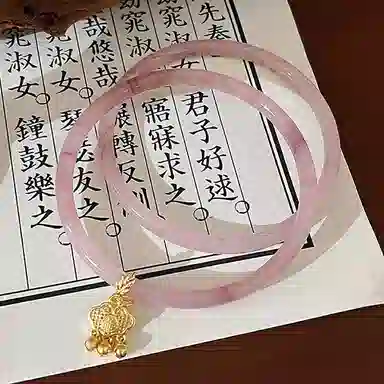 先秦
君子好逑。
窕淑女。寤寐求之。
哉悠哉。轉反
窕淑女。琴瑟友之。
窕淑女。鐘鼓樂之。